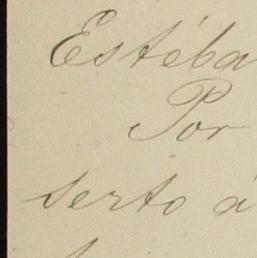 Estéba
Por
serto á